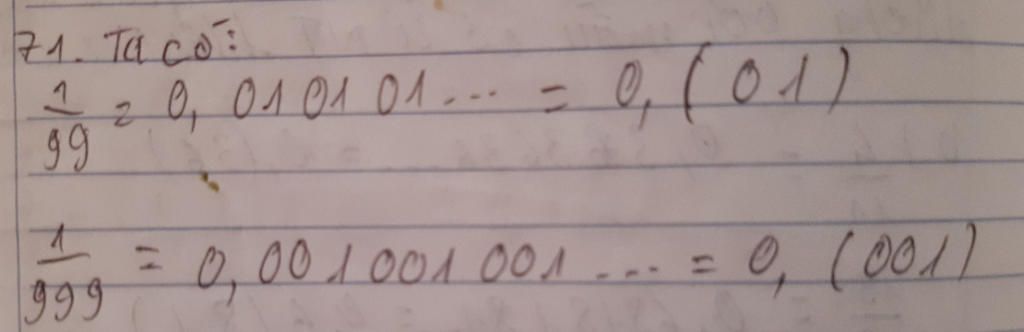 71. Ta có:
1/99 = 0,010101... = 0,(01)
1/999 = 0,001001001... = 0,(001)